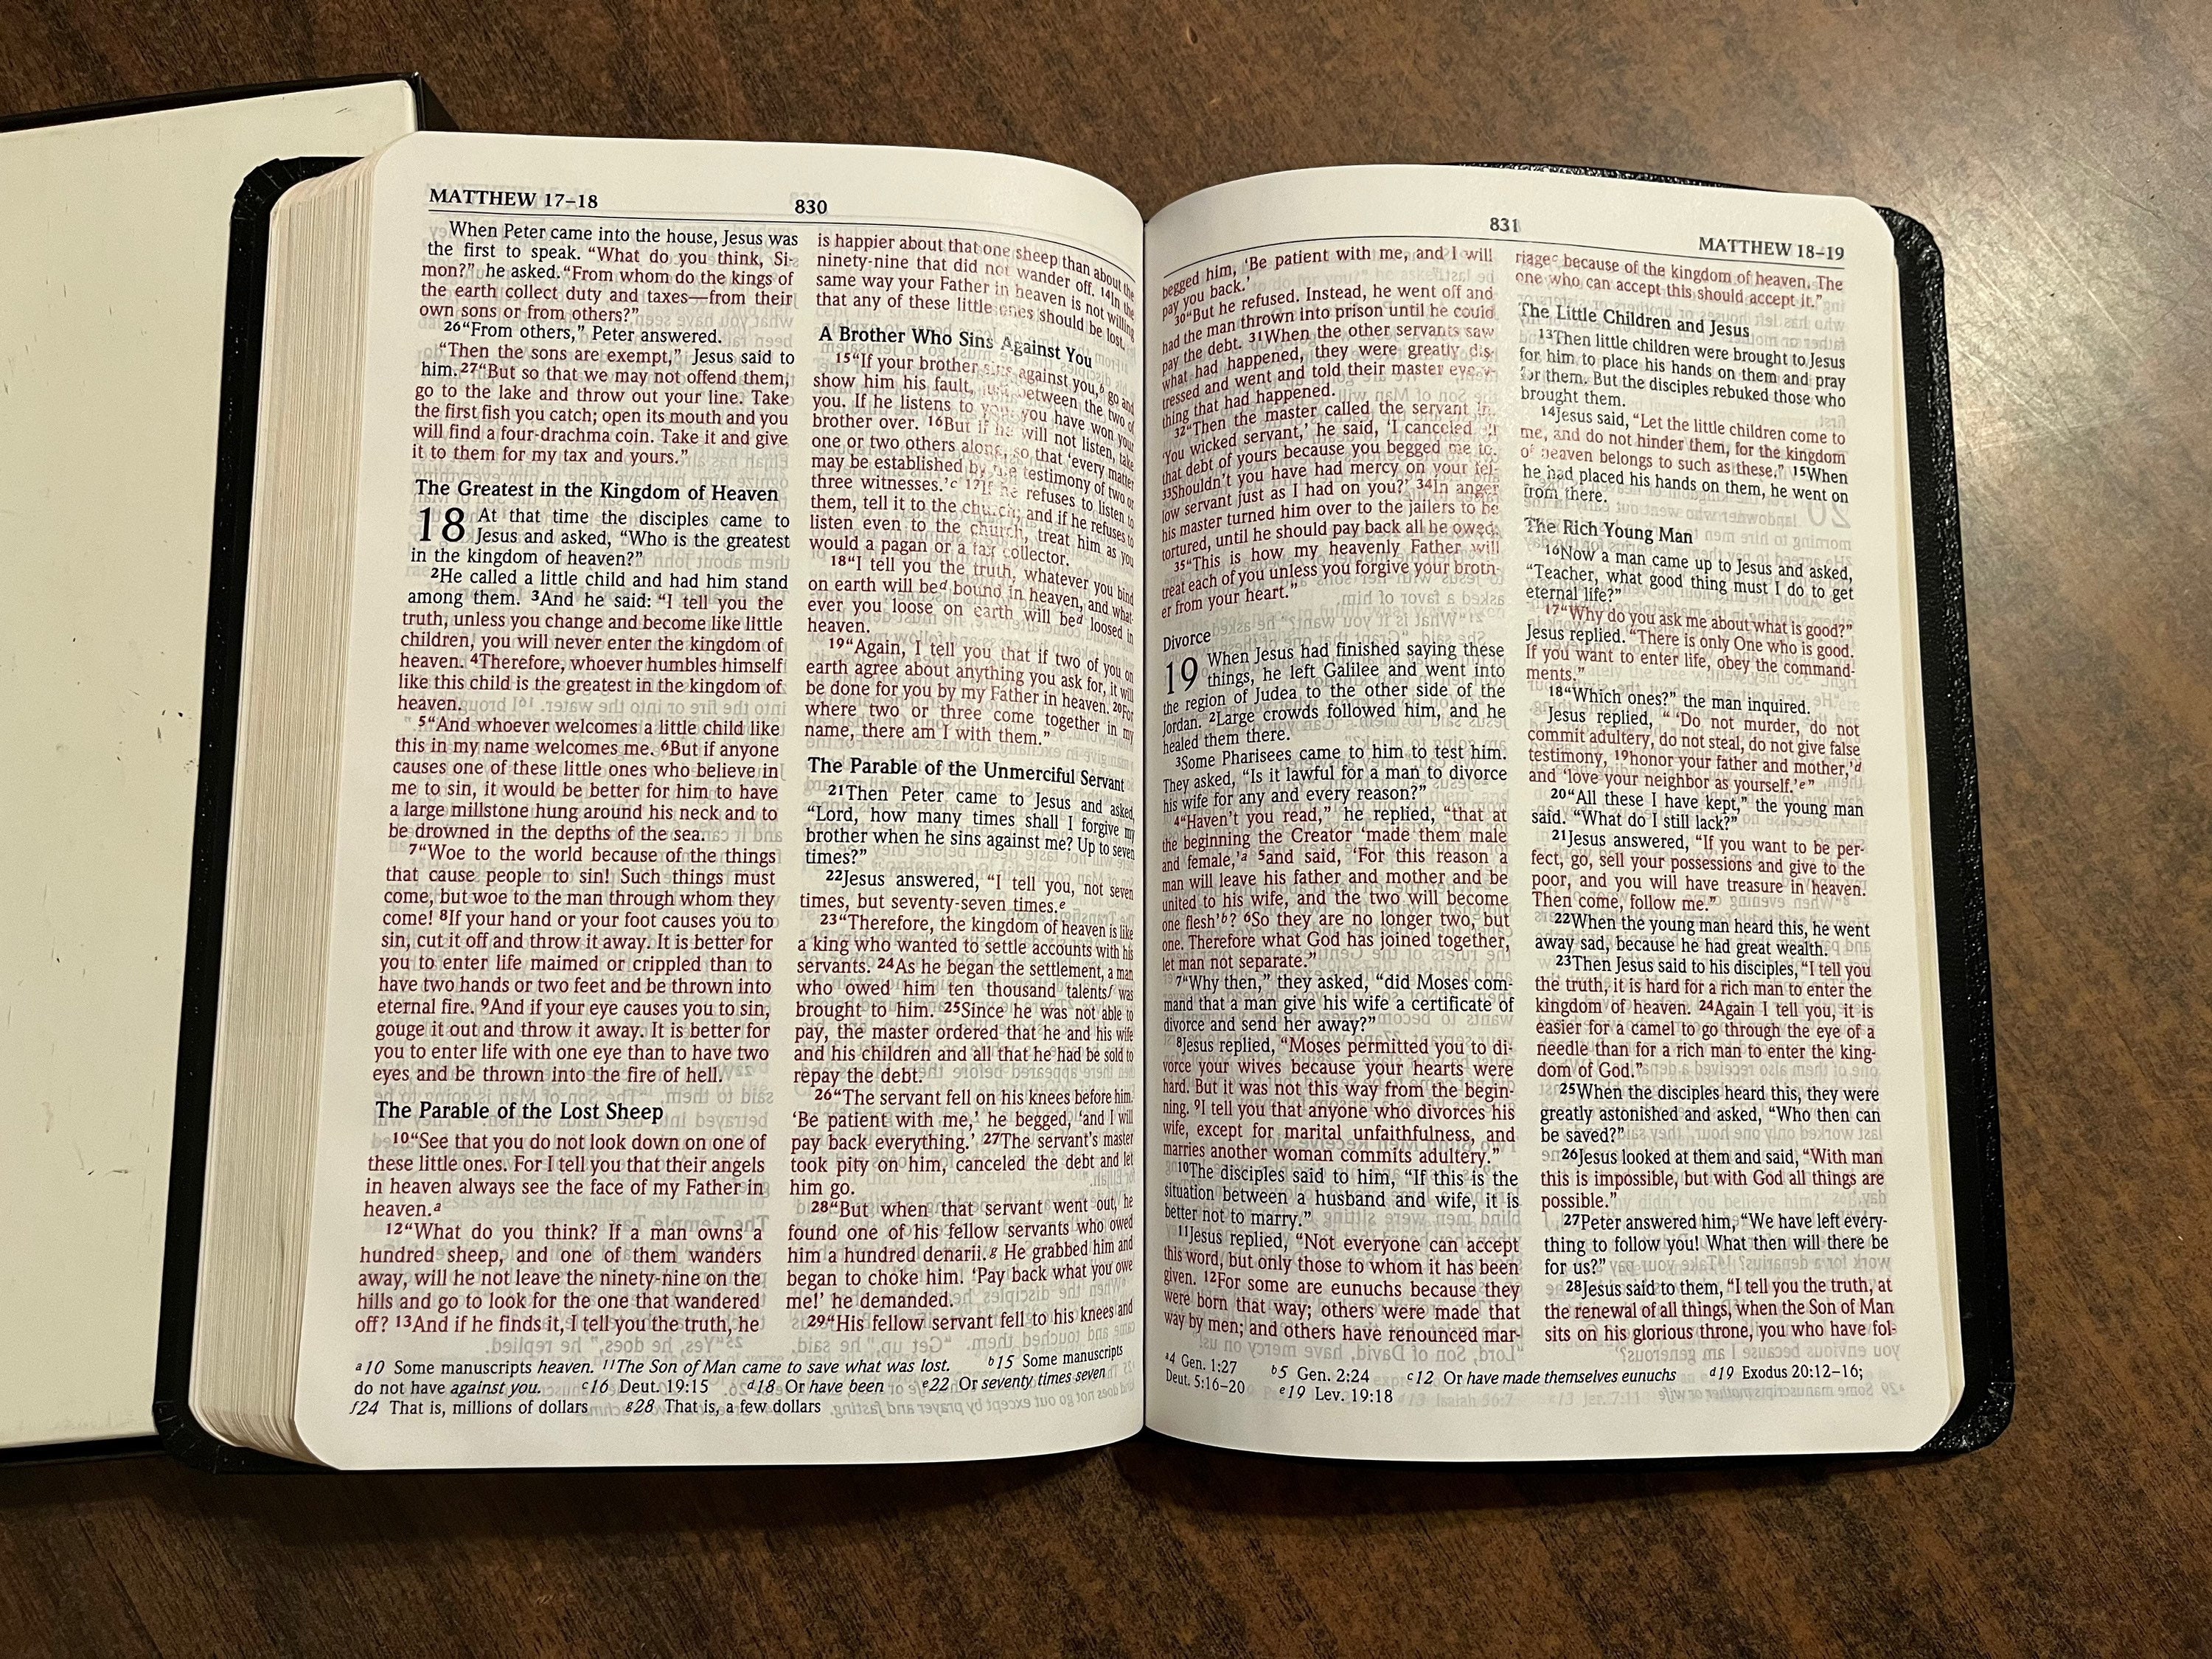 MATTHEW 17–18
830
When Peter came into the house, Jesus was
the first to speak. “What do you think, Si-
mon?” he asked. “From whom do the kings of
the earth collect duty and taxes—from their
own sons or from others?”
26“From others,” Peter answered.
“Then the sons are exempt,” Jesus said to
him. 27“But so that we may not offend them,
go to the lake and throw out your line. Take
the first fish you catch; open its mouth and you
will find a four-drachma coin. Take it and give
it to them for my tax and yours.”
The Greatest in the Kingdom of Heaven
18 At that time the disciples came to
Jesus and asked, “Who is the greatest
in the kingdom of heaven?”
2He called a little child and had him stand
among them. 3And he said: “I tell you the
truth, unless you change and become like little
children, you will never enter the kingdom of
heaven. 4Therefore, whoever humbles himself
like this child is the greatest in the kingdom of
heaven.
5“And whoever welcomes a little child like
this in my name welcomes me. 6But if anyone
causes one of these little ones who believe in
me to sin, it would be better for him to have
a large millstone hung around his neck and to
be drowned in the depths of the sea.
7“Woe to the world because of the things
that cause people to sin! Such things must
come, but woe to the man through whom they
come! 8If your hand or your foot causes you to
sin, cut it off and throw it away. It is better for
you to enter life maimed or crippled than to
have two hands or two feet and be thrown into
eternal fire. 9And if your eye causes you to sin,
gouge it out and throw it away. It is better for
you to enter life with one eye than to have two
eyes and be thrown into the fire of hell.
The Parable of the Lost Sheep
10“See that you do not look down on one of
these little ones. For I tell you that their angels
in heaven always see the face of my Father in
heaven.a
12“What do you think? If a man owns a
hundred sheep, and one of them wanders
away, will he not leave the ninety-nine on the
hills and go to look for the one that wandered
off? 13And if he finds it, I tell you the truth, he
is happier about that one sheep than about the
ninety-nine that did not wander off. 14In the
same way your Father in heaven is not willing
that any of these little ones should be lost.
A Brother Who Sins Against You
15“If your brother sins against you,b go and
show him his fault, just between the two of
you. If he listens to you, you have won your
brother over. 16But if he will not listen, take
one or two others along, so that ‘every matter
may be established by the testimony of two or
three witnesses.’c 17If he refuses to listen to
them, tell it to the church; and if he refuses to
listen even to the church, treat him as you
would a pagan or a tax collector.
18“I tell you the truth, whatever you bind
on earth will bed bound in heaven, and what-
ever you loose on earth will bed loosed in
heaven.
19“Again, I tell you that if two of you on
earth agree about anything you ask for, it will
be done for you by my Father in heaven. 20For
where two or three come together in my
name, there am I with them.”
The Parable of the Unmerciful Servant
21Then Peter came to Jesus and asked,
“Lord, how many times shall I forgive my
brother when he sins against me? Up to seven
times?”
22Jesus answered, “I tell you, not seven
times, but seventy-seven times.e
23“Therefore, the kingdom of heaven is like
a king who wanted to settle accounts with his
servants. 24As he began the settlement, a man
who owed him ten thousand talentsf was
brought to him. 25Since he was not able to
pay, the master ordered that he and his wife
and his children and all that he had be sold to
repay the debt.
26“The servant fell on his knees before him.
‘Be patient with me,’ he begged, ‘and I will
pay back everything.’ 27The servant’s master
took pity on him, canceled the debt and let
him go.
28“But when that servant went out, he
found one of his fellow servants who owed
him a hundred denarii.g He grabbed him and
began to choke him. ‘Pay back what you owe
me!’ he demanded.
29“His fellow servant fell to his knees and
a10 Some manuscripts heaven. 11The Son of Man came to save what was lost. b15 Some manuscripts
do not have against you. c16 Deut. 19:15 d18 Or have been e22 Or seventy times seven
f24 That is, millions of dollars g28 That is, a few dollars
831
MATTHEW 18–19
begged him, ‘Be patient with me, and I will
pay you back.’
30“But he refused. Instead, he went off and
had the man thrown into prison until he could
pay the debt. 31When the other servants saw
what had happened, they were greatly dis-
tressed and went and told their master every-
thing that had happened.
32“Then the master called the servant in.
‘You wicked servant,’ he said, ‘I canceled all
that debt of yours because you begged me to.
33Shouldn’t you have had mercy on your fel-
low servant just as I had on you?’ 34In anger
his master turned him over to the jailers to be
tortured, until he should pay back all he owed.
35“This is how my heavenly Father will
treat each of you unless you forgive your broth-
er from your heart.”
Divorce
19 When Jesus had finished saying these
things, he left Galilee and went into
the region of Judea to the other side of the
Jordan. 2Large crowds followed him, and he
healed them there.
3Some Pharisees came to him to test him.
They asked, “Is it lawful for a man to divorce
his wife for any and every reason?”
4“Haven’t you read,” he replied, “that at
the beginning the Creator ‘made them male
and female,’a 5and said, ‘For this reason a
man will leave his father and mother and be
united to his wife, and the two will become
one flesh’b? 6So they are no longer two, but
one. Therefore what God has joined together,
let man not separate.”
7“Why then,” they asked, “did Moses com-
mand that a man give his wife a certificate of
divorce and send her away?”
8Jesus replied, “Moses permitted you to di-
vorce your wives because your hearts were
hard. But it was not this way from the begin-
ning. 9I tell you that anyone who divorces his
wife, except for marital unfaithfulness, and
marries another woman commits adultery.”
10The disciples said to him, “If this is the
situation between a husband and wife, it is
better not to marry.”
11Jesus replied, “Not everyone can accept
this word, but only those to whom it has been
given. 12For some are eunuchs because they
were born that way; others were made that
way by men; and others have renounced mar-
riagec because of the kingdom of heaven. The
one who can accept this should accept it.”
The Little Children and Jesus
13Then little children were brought to Jesus
for him to place his hands on them and pray
for them. But the disciples rebuked those who
brought them.
14Jesus said, “Let the little children come to
me, and do not hinder them, for the kingdom
of heaven belongs to such as these.” 15When
he had placed his hands on them, he went on
from there.
The Rich Young Man
16Now a man came up to Jesus and asked,
“Teacher, what good thing must I do to get
eternal life?”
17“Why do you ask me about what is good?”
Jesus replied. “There is only One who is good.
If you want to enter life, obey the command-
ments.”
18“Which ones?” the man inquired.
Jesus replied, “ ‘Do not murder, do not
commit adultery, do not steal, do not give false
testimony, 19honor your father and mother,’d
and ‘love your neighbor as yourself.’e”
20“All these I have kept,” the young man
said. “What do I still lack?”
21Jesus answered, “If you want to be per-
fect, go, sell your possessions and give to the
poor, and you will have treasure in heaven.
Then come, follow me.”
22When the young man heard this, he went
away sad, because he had great wealth.
23Then Jesus said to his disciples, “I tell you
the truth, it is hard for a rich man to enter the
kingdom of heaven. 24Again I tell you, it is
easier for a camel to go through the eye of a
needle than for a rich man to enter the king-
dom of God.”
25When the disciples heard this, they were
greatly astonished and asked, “Who then can
be saved?”
26Jesus looked at them and said, “With man
this is impossible, but with God all things are
possible.”
27Peter answered him, “We have left every-
thing to follow you! What then will there be
for us?”
28Jesus said to them, “I tell you the truth, at
the renewal of all things, when the Son of Man
sits on his glorious throne, you who have fol-
a4 Gen. 1:27 b5 Gen. 2:24 c12 Or have made themselves eunuchs d19 Exodus 20:12–16;
Deut. 5:16–20 e19 Lev. 19:18